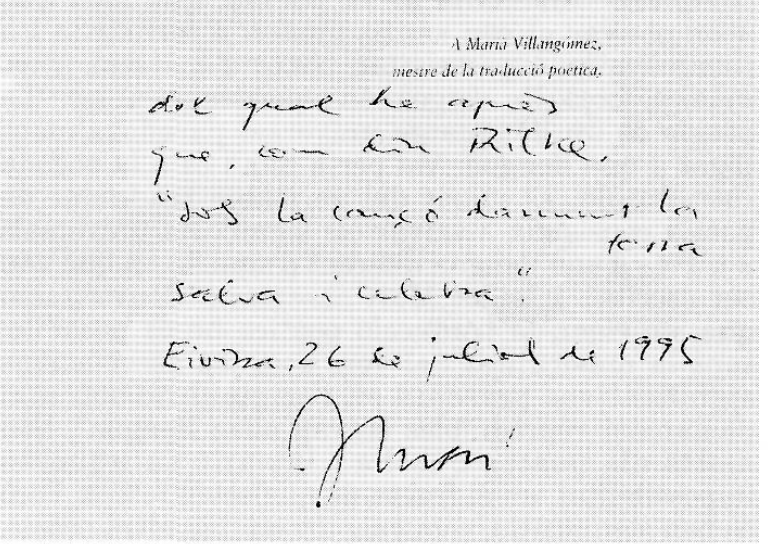 A Marià Villangómez,
mestre de la traducció poètica,
del qual he après
que, com diu Rilke,
"Sols la cançó damunt la
terra
salva i celebra".
Eivissa, 26 de juliol de 1995